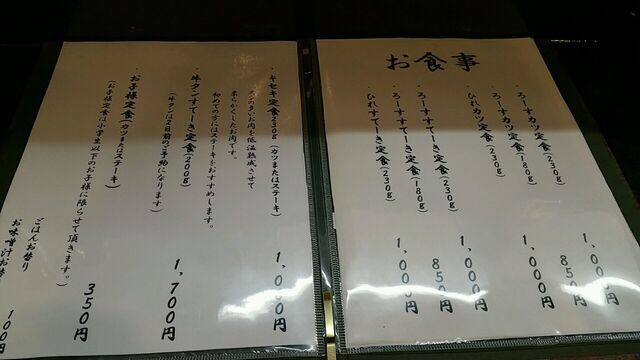 お食事
・ろーすカツ定食(230g) 1,000円
・ろーすカツ定食(180g) 850円
・ひれカツ定食(230g) 1,000円
・ろーすすてーき定食(230g) 1,000円
・ろーすすてーき定食(180g) 850円
・ひれすてーき定食(230g) 1,000円
・キセキ定食230g(カツまたはステーキ) 1,000円
スジの多いお肉を低温熟成させて
柔らかくしたお肉です。
初めての方にはステーキをおすすめします。
・牛タンすてーき定食(200g) 1,700円
(牛タンは2日前のご予約になります)
・お子様定食(カツまたはステーキ) 350円
(お子様定食は小学生以下のお子様に限らせて頂きます。)
ごはんお替り
お味噌汁お替 100円